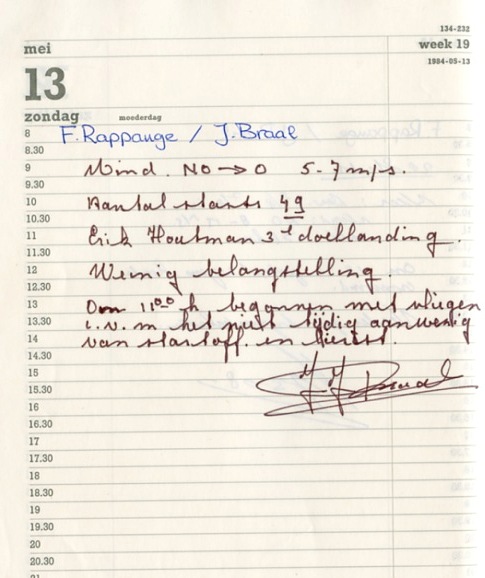 134-232
mei
week 19
13
1984-05-13
zondag
moederdag
8 F. Rappange / J. Braal
8.30
9 Wind. NO → O 5-7 m/s.
9.30
10 Aantal starts 49
10.30
11 Erik Houtman 3e doellanding.
11.30
12 Weinig belangstelling.
12.30
13 Om 11.00 h begonnen met vliegen
13.30 i.v.m het niet tijdig aanwezig
14 van startoff. en lierist.
14.30
15
15.30 Braal
16
16.30
17
17.30
18
18.30
19
19.30
20
20.30
21